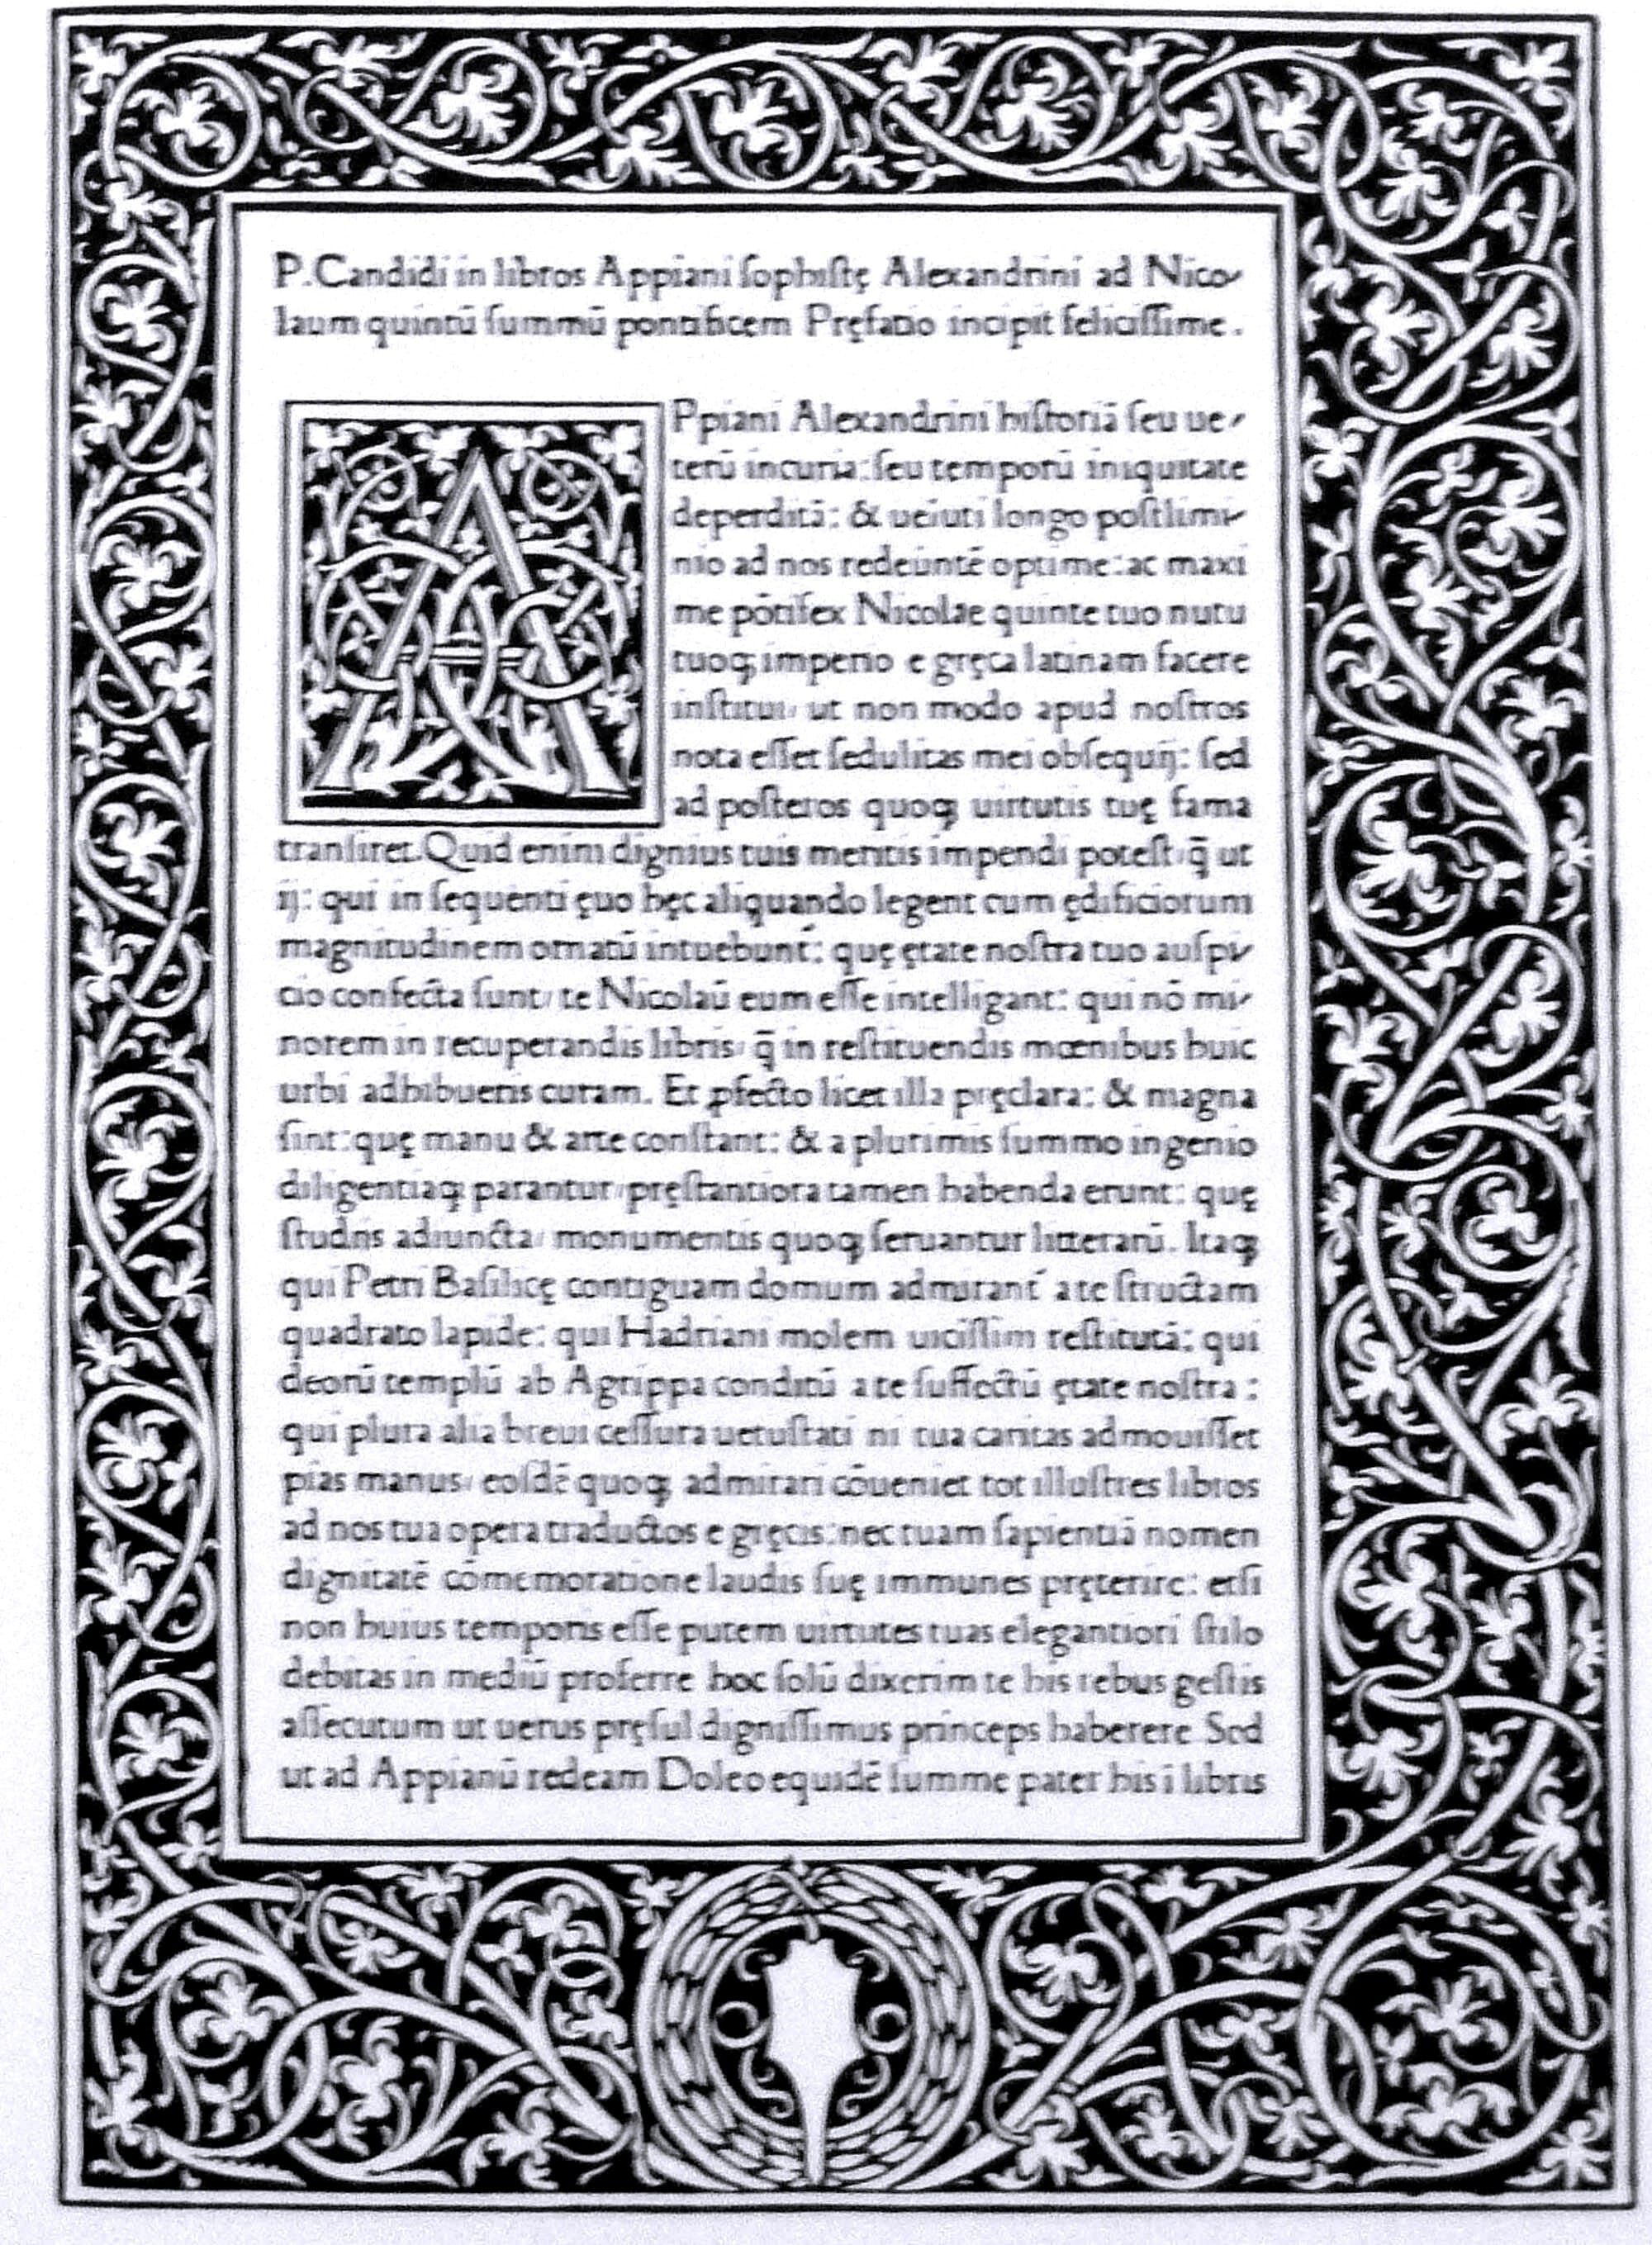 P.Candidi in libros Appiani ſophiſtę Alexandrini ad Nico-
laum quintū ſummū pontificem Pręfatio incipit feliciſſime.
APpiani Alexandrini hiſtoriā ſeu ue-
terū incuria:ſeu temporū iniquitate
deperditā: & ueluti longo poſtlimi-
nio ad nos redeuntē optime:ac maxi
me pōtifex Nicolae quinte tuo nutu
tuoqꝫ imperio e gręca latinam facere
inſtitui/ ut non modo apud noſtros
nota eſſet ſedulitas mei obſequij: ſed
ad poſteros quoqꝫ uirtutis tuę fama
tranſiret.Quid enim dignius tuis meritis impendi poteſt/q̄ ut
ij: qui in ſequenti ęuo hęc aliquando legent cum ędificiorum
magnitudinem ornatū intuebunt́: quę ętate noſtra tuo auſpi-
cio confecta ſunt/ te Nicolaū eum eſſe intelligant: qui nō mi-
norem in recuperandis libris/ q̄ in reſtituendis mœnibus huic
urbi adhibueris curam. Et ꝓfecto licet illa pręclara: & magna
ſint:quę manu & arte conſtant: & a plurimis ſummo ingenio
diligentiaqꝫ parantur/pręſtantiora tamen habenda erunt: quę
ſtudiis adiuncta/ monumentis quoqꝫ ſeruantur litterarū. Itaqꝫ
qui Petri Baſilicę contiguam domum admirant́ a te ſtructam
quadrato lapide: qui Hadriani molem uiciſſim reſtitutā: qui
deorū templū ab Agrippa conditū a te ſuffectū ętate noſtra:
qui plura alia breui ceſſura uetuſtati ni tua caritas admouiſſet
pias manus/ eoſdē quoqꝫ admirari cōueniet tot illuſtres libros
ad nos tua opera traductos e gręcis:nec tuam ſapientiā nomen
dignitatē cōmemoratione laudis ſuę immunes pręterire: etſi
non huius temporis eſſe putem uirtutes tuas elegantiori ſtilo
debitas in mediū proferre hoc ſolū dixerim te his rebus geſtis
aſſecutum ut uerus pręſul digniſſimus princeps haberere Sed
ut ad Appianū redeam Doleo equidē ſumme pater his ī libris